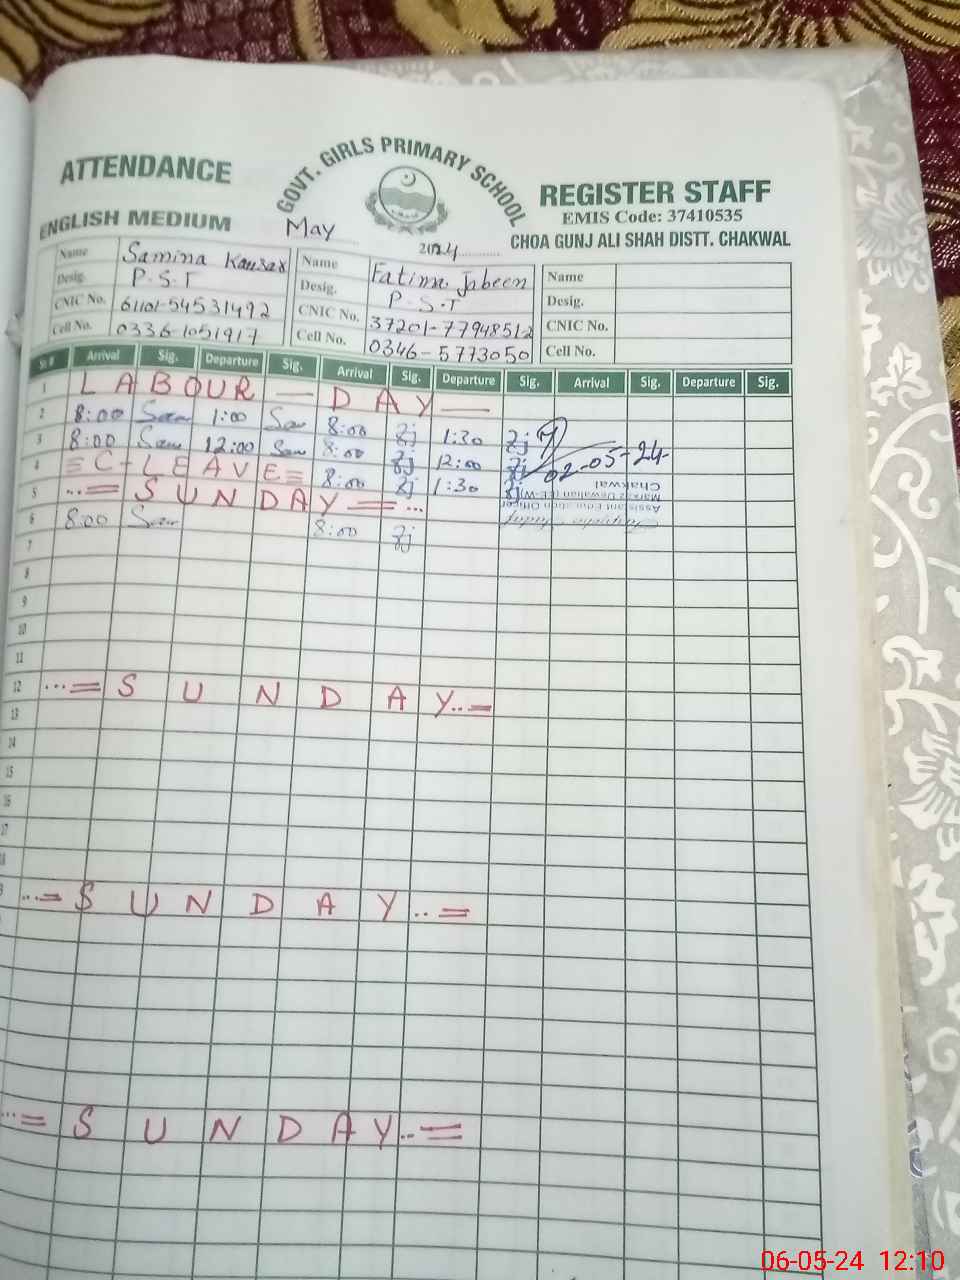 ATTENDANCE
GOVT. GIRLS PRIMARY SCHOOL
REGISTER STAFF
EMIS Code: 37410535
ENGLISH MEDIUM
May
2024
CHOA GUNJ ALI SHAH DISTT. CHAKWAL
Name Samina Kausar Name Fatima Jabeen Name
Desig. P.S.T Desig. P.S.T Desig.
CNIC No. 61101-54531492 CNIC No. 37201-7794851-2 CNIC No.
Cell No. 0336-1051917 Cell No. 0346-5773050 Cell No.
Sr # Arrival Sig. Departure Sig. Arrival Sig. Departure Sig. Arrival Sig. Departure Sig.
1 LABOUR — DAY —
2 8:00 Sam 1:00 Sam 8:00 Fj 1:30 Fj
3 8:00 Sam 12:00 Sam 8:00 Fj 12:00 Fj 02-05-24
4 =C-LEAVE= 8:00 Fj 1:30 Fj
Chakwal
5 ..= SUNDAY =...
Assistant Education Officer
6 8:00 Sam 8:00 Fj
7
8
9
10
11
12 ...= SUNDAY..=
13
14
15
16
17
18
...= SUNDAY..=
...= SUNDAY..=
06-05-24 12:10